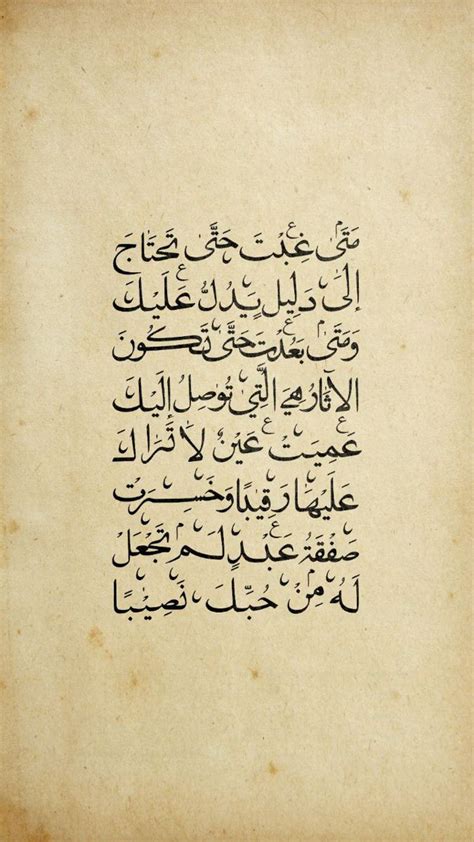 مَتَى غِبْتَ حَتَّى تَحْتَاجَ
إِلَى دَلِيلٍ يَدُلُّ عَلَيْكَ
وَمَتَى بَعُدْتَ حَتَّى تَكُونَ
الْآثَارُ هِيَ الَّتِي تُوصِلُ إِلَيْكَ
عَمِيَتْ عَيْنٌ لَا تَرَاكَ
عَلَيْهَا رَقِيبًا وَخَسِرَتْ
صَفْقَةُ عَبْدٍ لَمْ تَجْعَلْ
لَهُ مِنْ حُبِّكَ نَصِيبًا